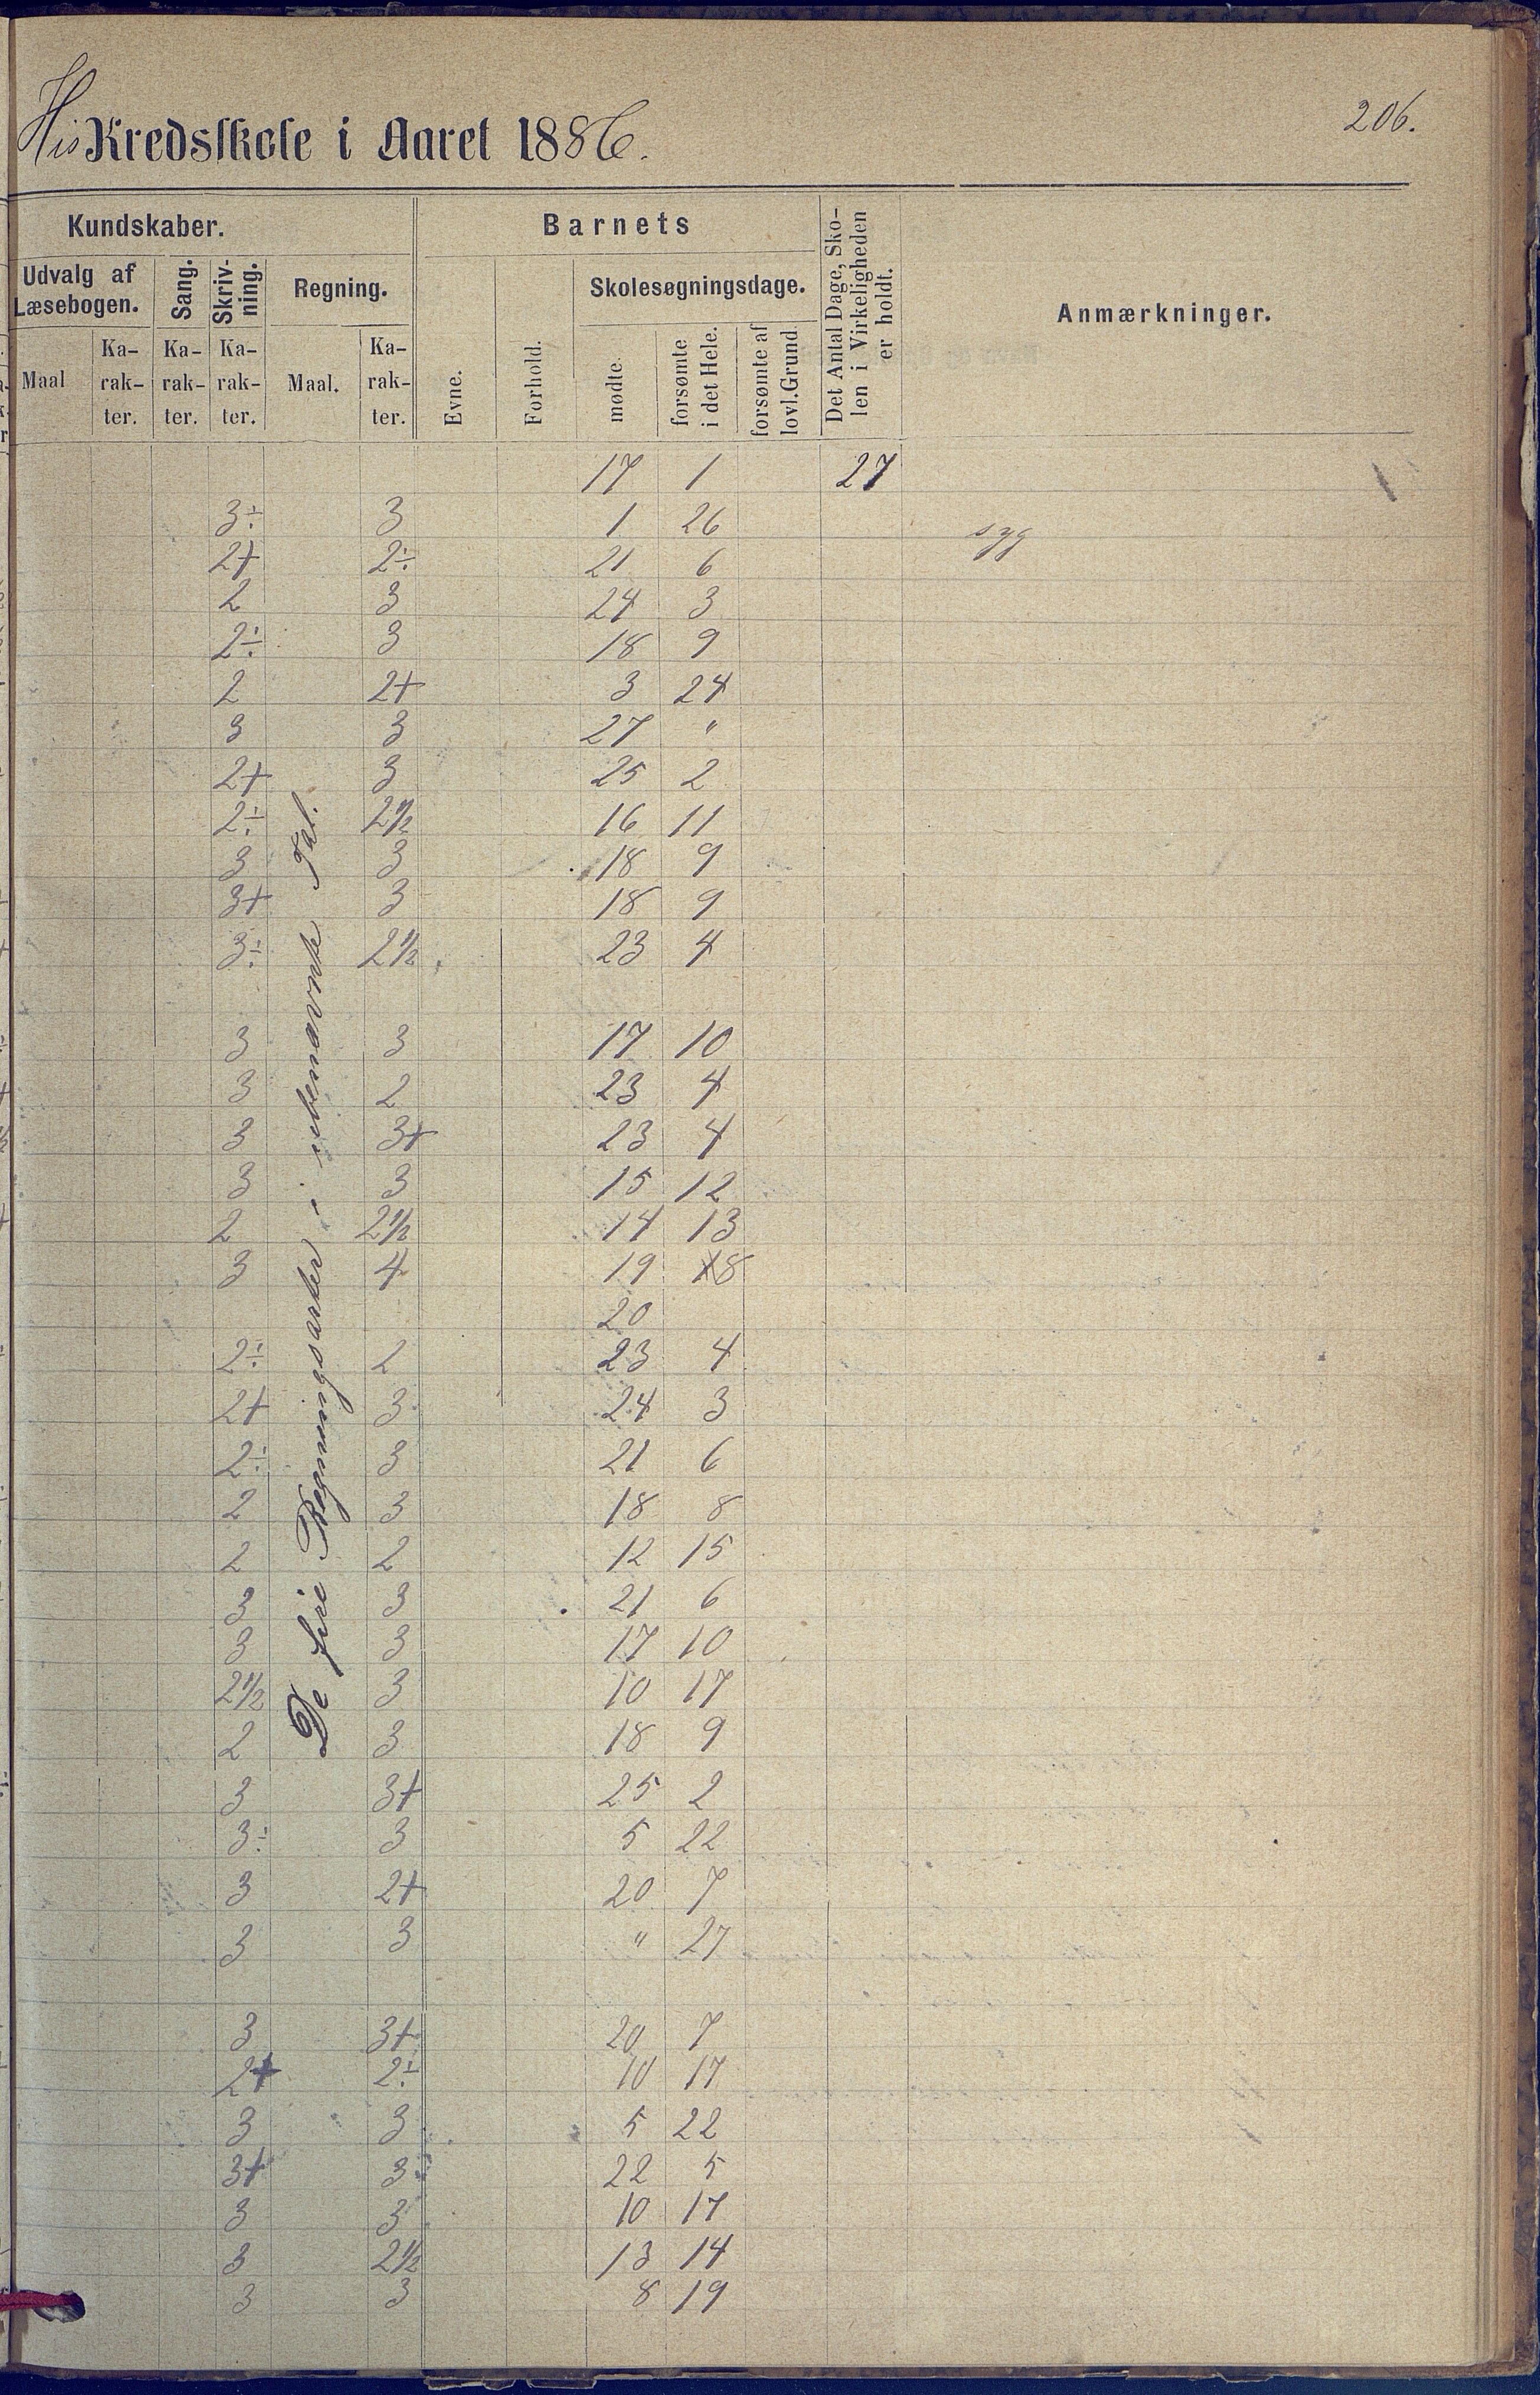 His Kredsskole i Aaret 1886.
206.
Kundskaber.
Barnets
Det Antal Dage, Sko-
len i Virkeligheden
er holdt.
Anmærkninger.
Udvalg af
Læsebogen.
Sang.
Skriv-
ning.
Regning.
Evne.
Forhold.
Skolesøgningsdage.
Maal
Ka-
rak-
ter.
Ka-
rak-
ter.
Ka-
rak-
ter.
Maal.
Ka-
rak-
ter.
mødte.
forsømte
i det Hele.
forsømte af
lovl. Grund
De fire Regningsarter i ubenævnte Tal.
17 1 27
3÷ 3 1 26 syg
2+ 2÷ 21 6
2 3 24 3
2÷ 3 18 9
2 2+ 3 24
3 3 27 "
2+ 3 25 2
2÷ 2½ 16 11
3 3 18 9
3+ 3 18 9
3÷ 2½ 23 4
3 3 17 10
3 2 23 4
3 3+ 23 4
3 3 15 12
2 2½ 14 13
3 4 19 18
20
2÷ 2 23 4
2+ 3 24 3
2÷ 3 21 6
2 3 18 8
2 2 12 15
3 3 21 6
3 3 17 10
2½ 3 10 17
2 3 18 9
3 3+ 25 2
3÷ 3 5 22
3 2+ 20 7
3 3 " 27
3 3+ 20 7
2+ 2÷ 10 17
3 3 5 22
3+ 3 22 5
3 3 10 17
3 2½ 13 14
3 3 8 19